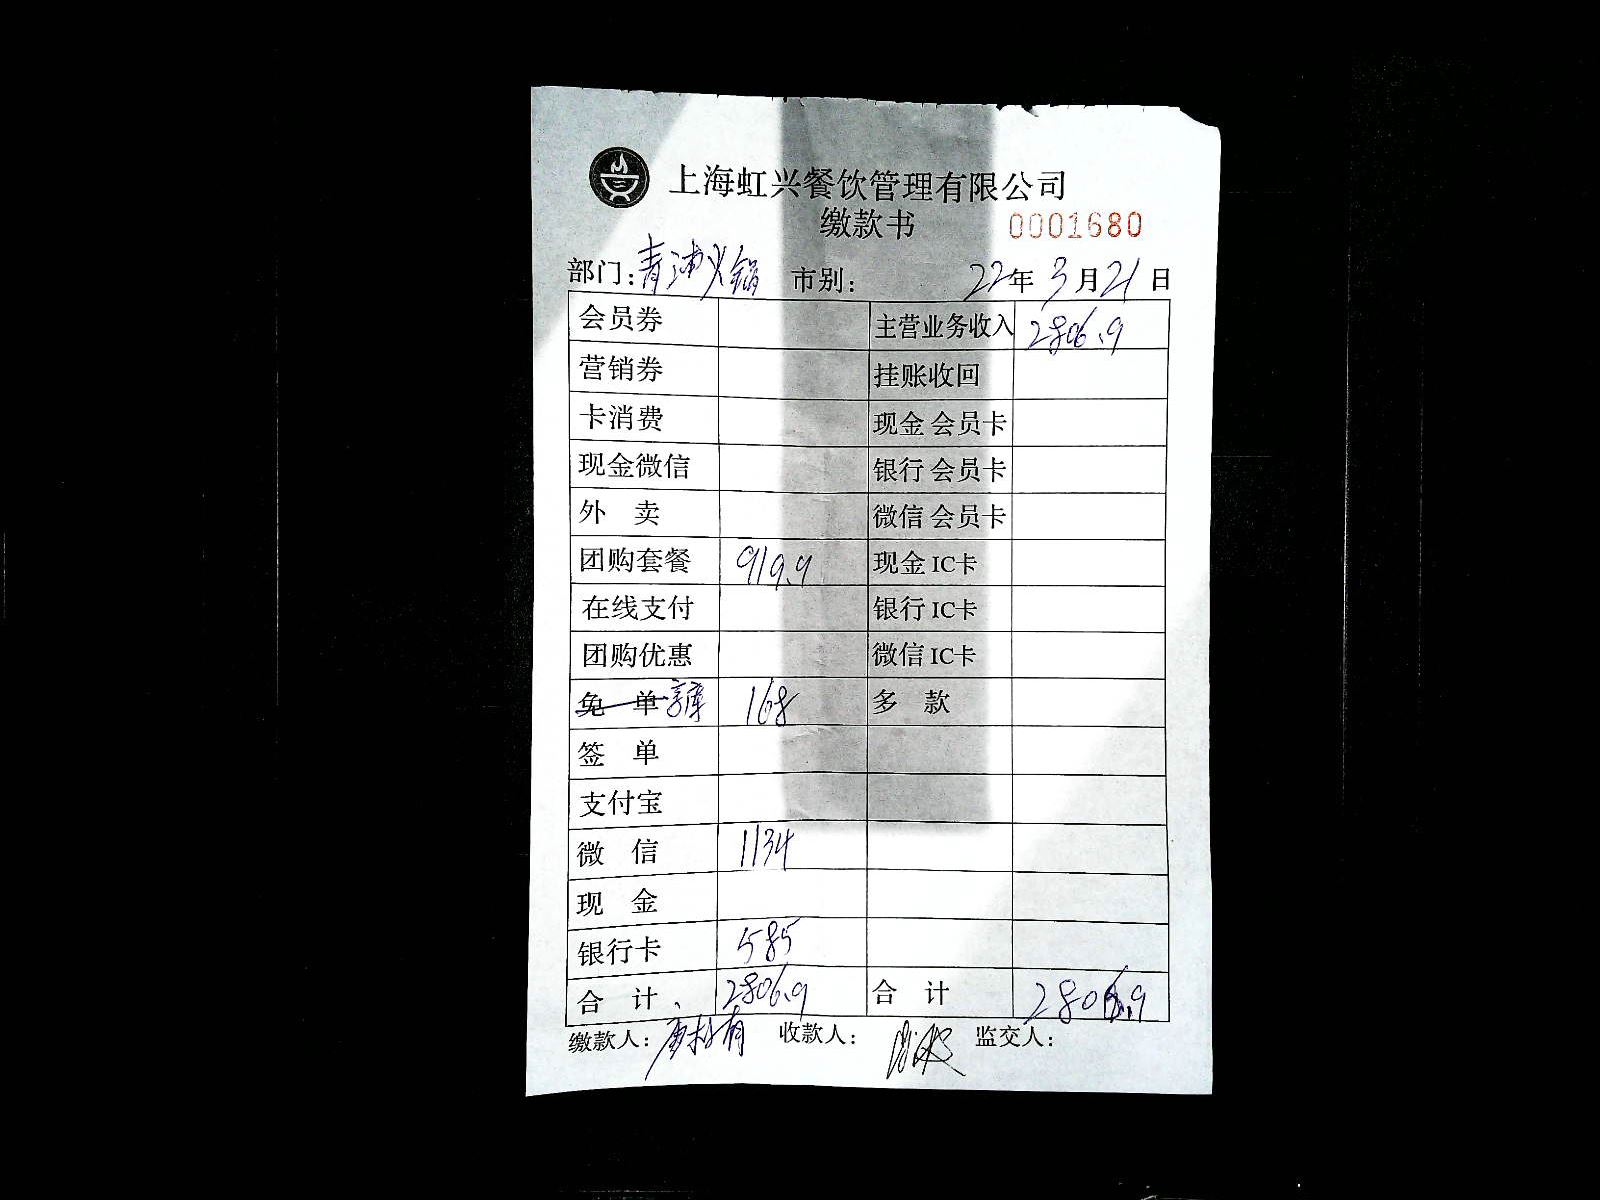 上海虹兴餐饮管理有限公司
缴款书 0001680
部门:青浦火锅 市别: 22年3月21日
会员券 主营业务收入 2806.9
营销券 挂账收回
卡消费 现金会员卡
现金微信 银行会员卡
外卖 微信会员卡
团购套餐 919.9 现金IC卡
在线支付 银行IC卡
团购优惠 微信IC卡
免单 168 多款
签单
支付宝
微信 1134
现金
银行卡 585
合计 2806.9 合计 2806.9
缴款人: 收款人: 监交人: